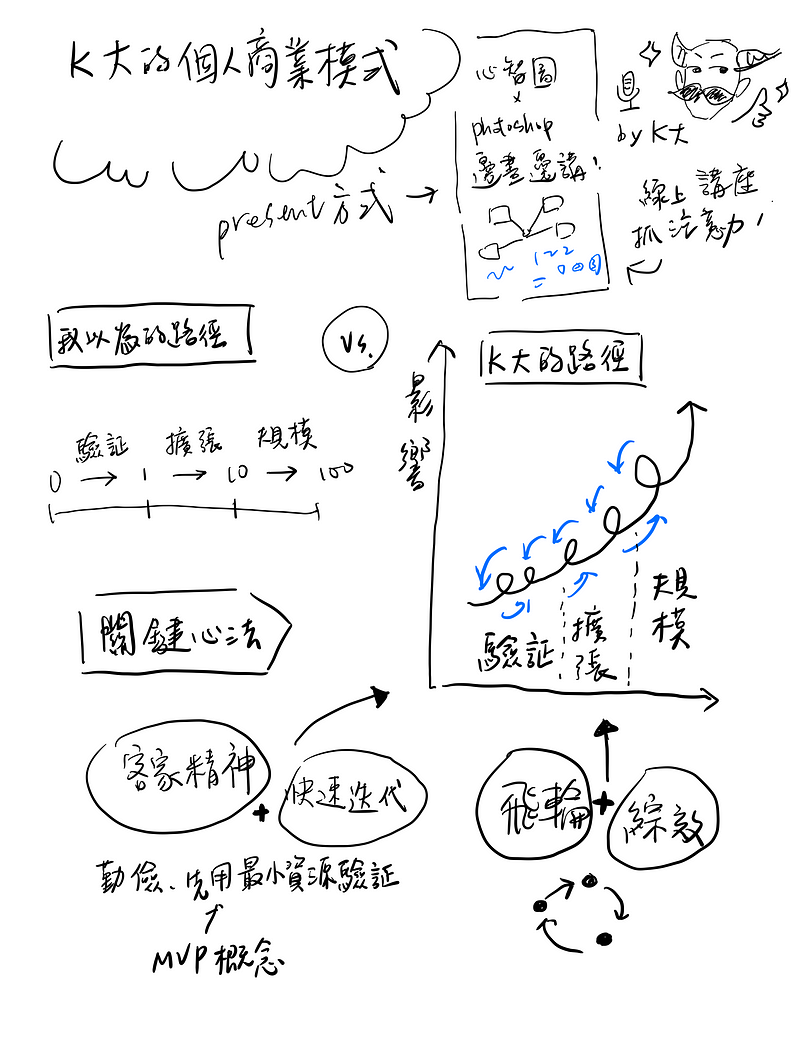 K大的個人商業模式
心智圖
x
photoshop
邊畫邊講!
by K大
present方式 →
線上講座
抓注意力!
我以為的路徑
vs.
K大的路徑
影響
驗証 擴張 規模
0 → 1 → 10 → 100
驗証
擴張
規模
關鍵心法
客家精神
+
快速迭代
飛輪
+
綜效
勤儉、先用最小資源驗証
MVP概念